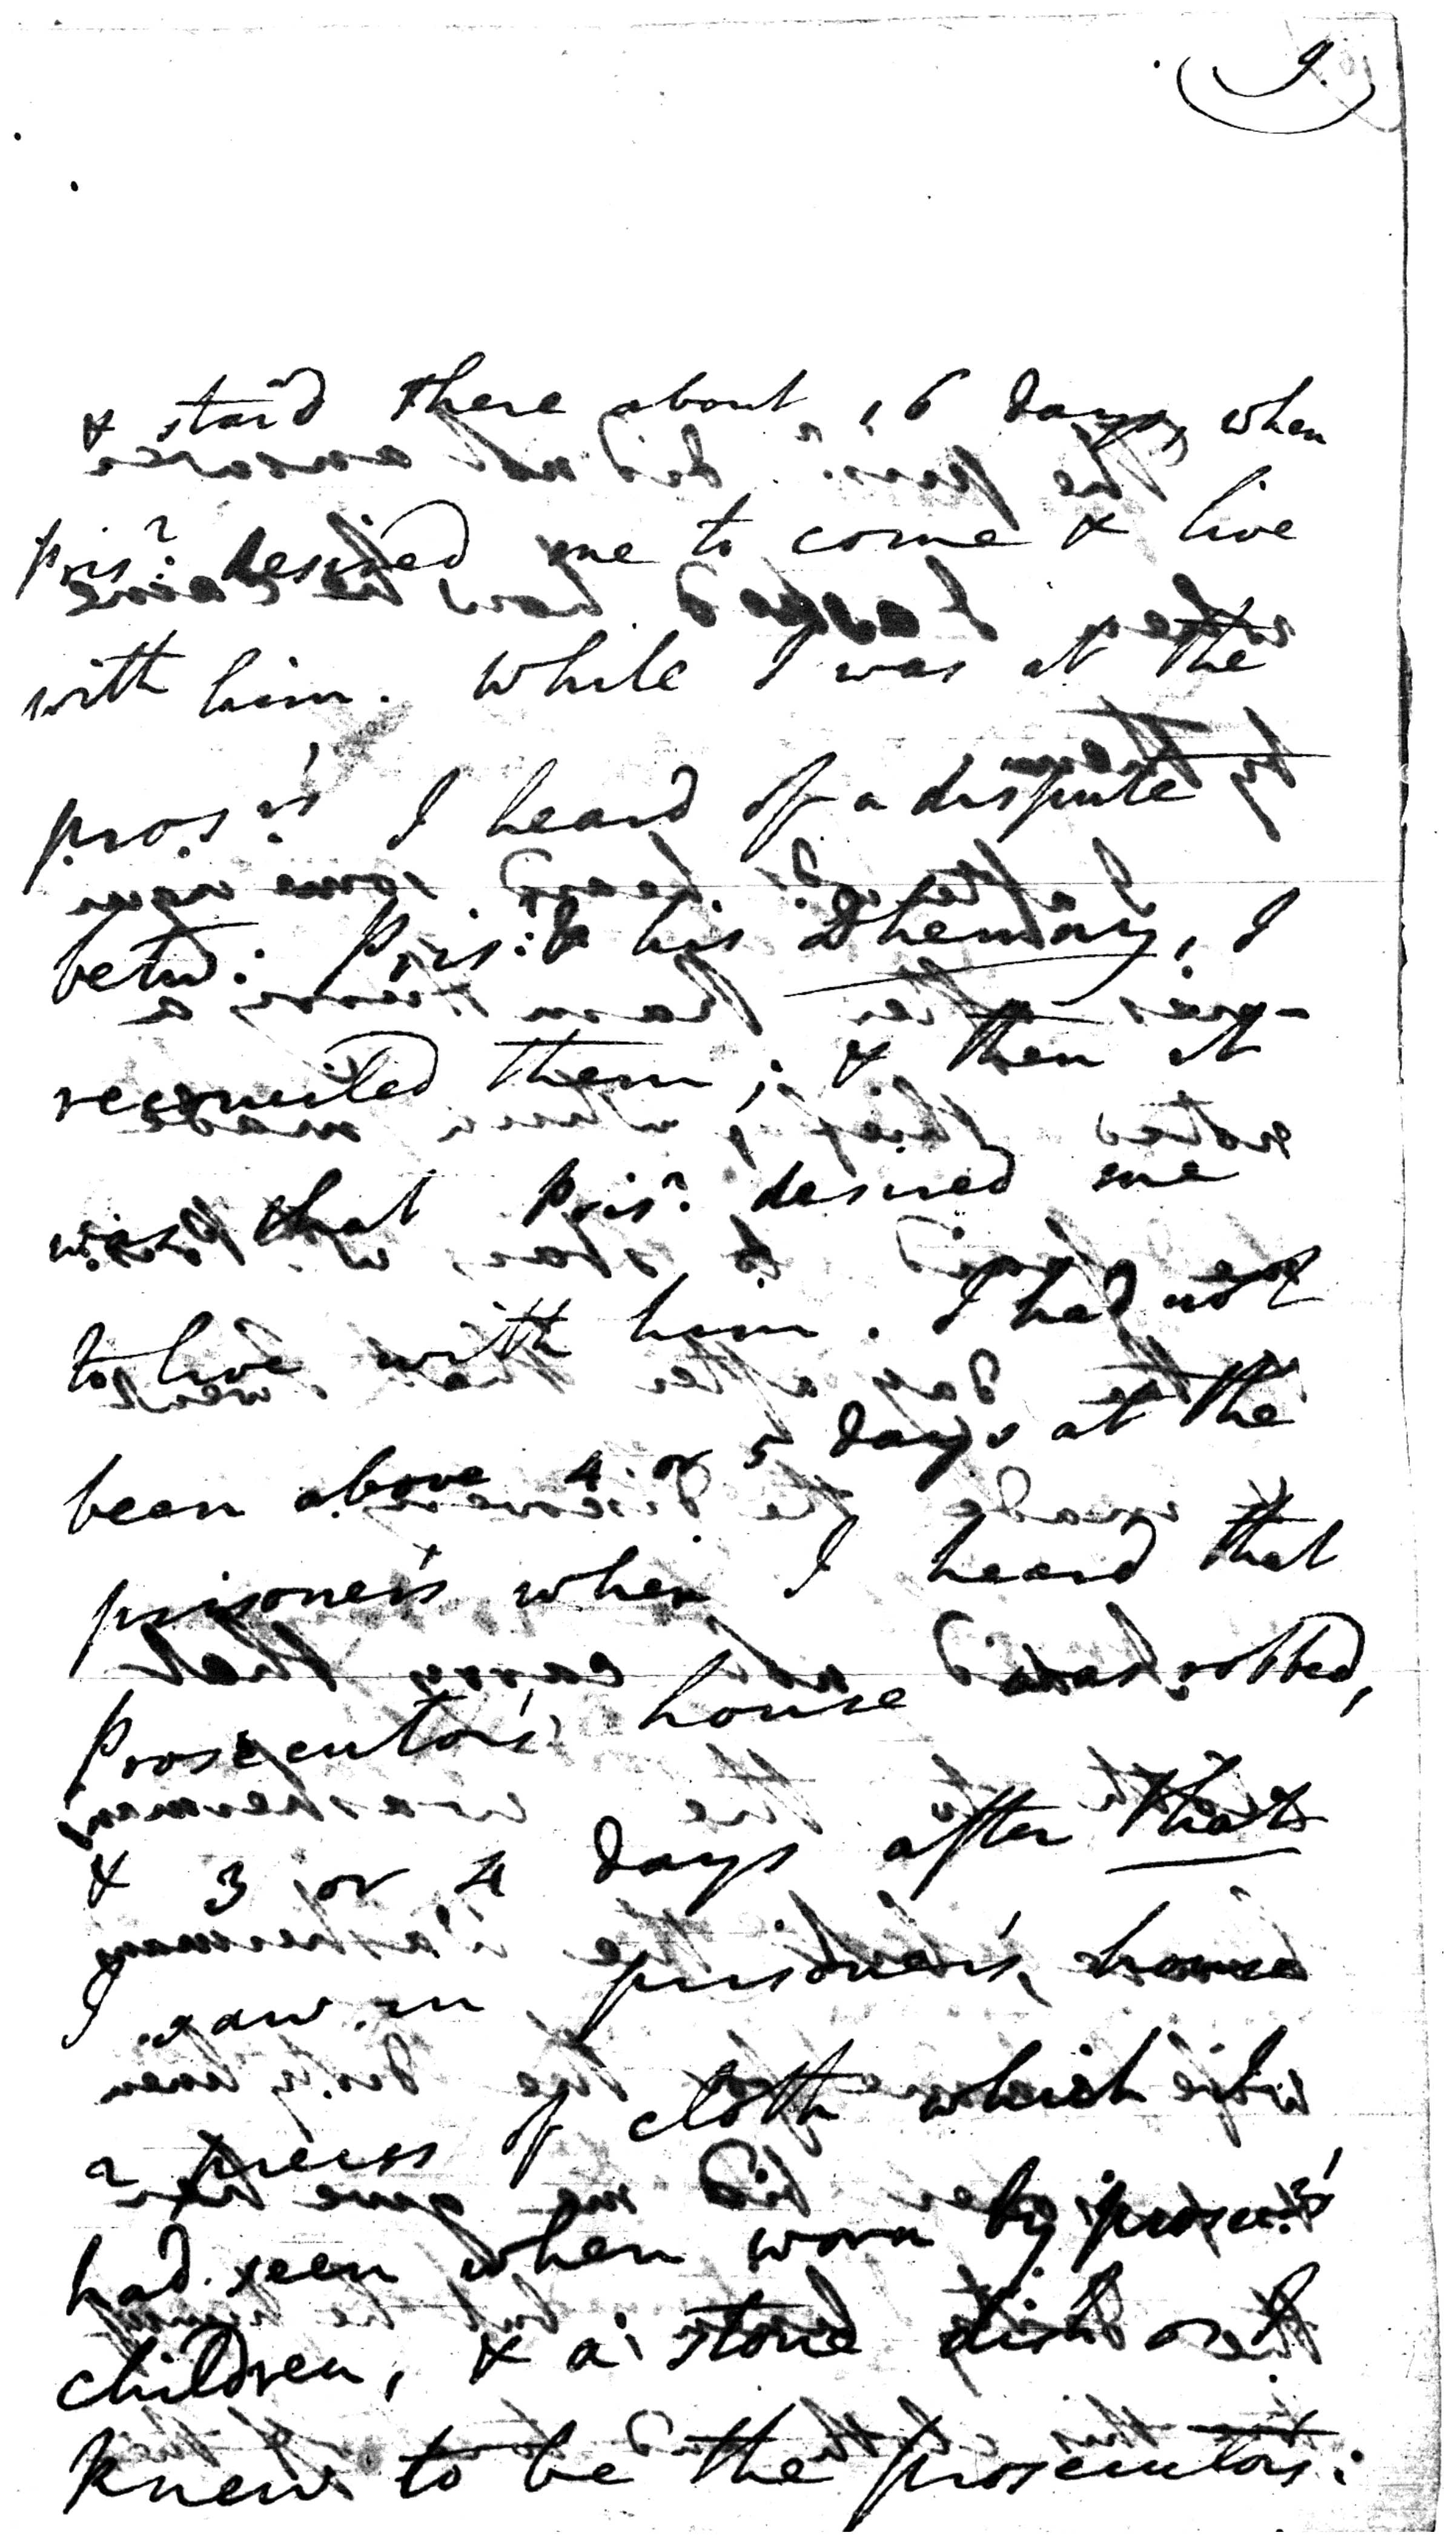 9.
& staid there about 16 days, when
Pris.r desired me to come & live
with him. While I was at the
pros.rs' I heard of a dispute
betw: Pris.r & his Dhemary, I
reconciled them; & then it
was that Pris.r desired me
to live with him. I had not
been above 4 or 5 days at the
prisoner's when I heard that
Prosecutor's house was robbed,
& 3 or 4 days after that
I saw in prisoner's house
a piece of cloth which I
had seen when worn by prosr.s'
children, & a stone dish
knew to be the prosecutors: